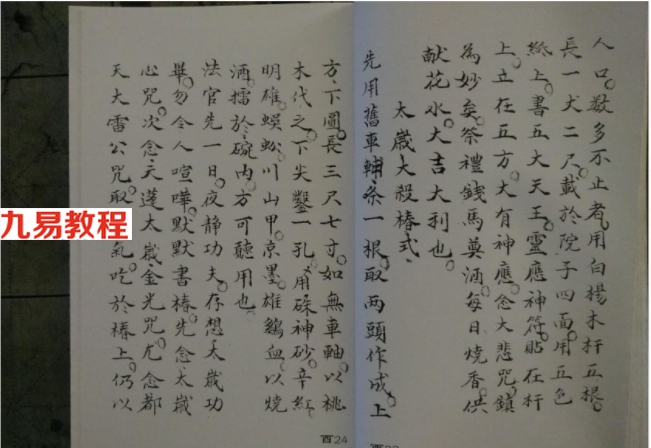 人口。数多不止者。用白楊木杆五根。
長一丈二尺。載於院子四面。用五色
紙上。書五大天王靈應神符。貼在杆
上。立在五方。大有神應。念大悲咒。鎮
為妙矣。祭禮錢馬奠酒。每日燒香供
献花水。大吉大利也。
太歲大殺椿式
先用舊車輔条一根。取两頭作成。上
方。下圓。長三尺七寸。如無車軸。以桃
木代之。下尖鑿一孔。用硃神砂。辛紅
明雄。蜈蚣。川山甲。京墨。雄鷄血。以燒
酒擂於碗内。方可聽用也。
法官先一日。夜静功夫。存想太歲功
畢。勿令人喧嘩。默默書椿。先念太歲
心咒。次念天蓬太歲金光咒。尤念都
天大雷公咒。取氣吃於椿上。仍以
酉24
九易教程